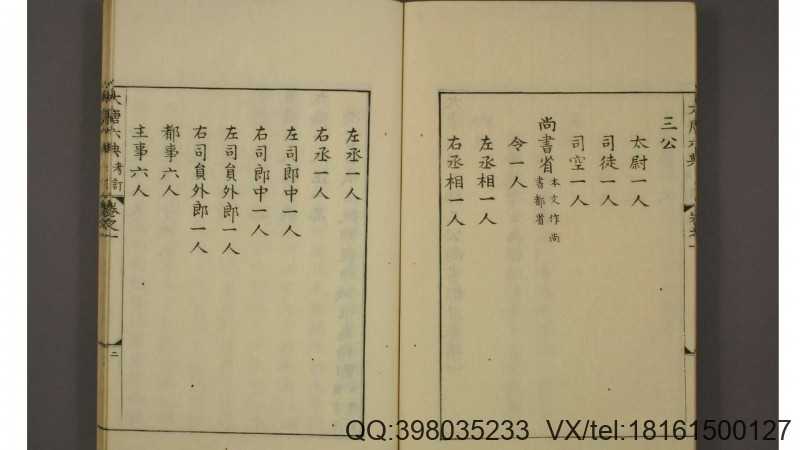 三公
太尉一人
司徒一人
司空一人
尚書省 本文作尚書都省
令一人
左丞相一人
右丞相一人
左丞一人
右丞一人
左司郎中一人
右司郎中一人
左司員外郎一人
右司員外郎一人
都事六人
主事六人
大唐六典 考訂 卷之一 二
QQ:398035233 VX/tel:18161500127